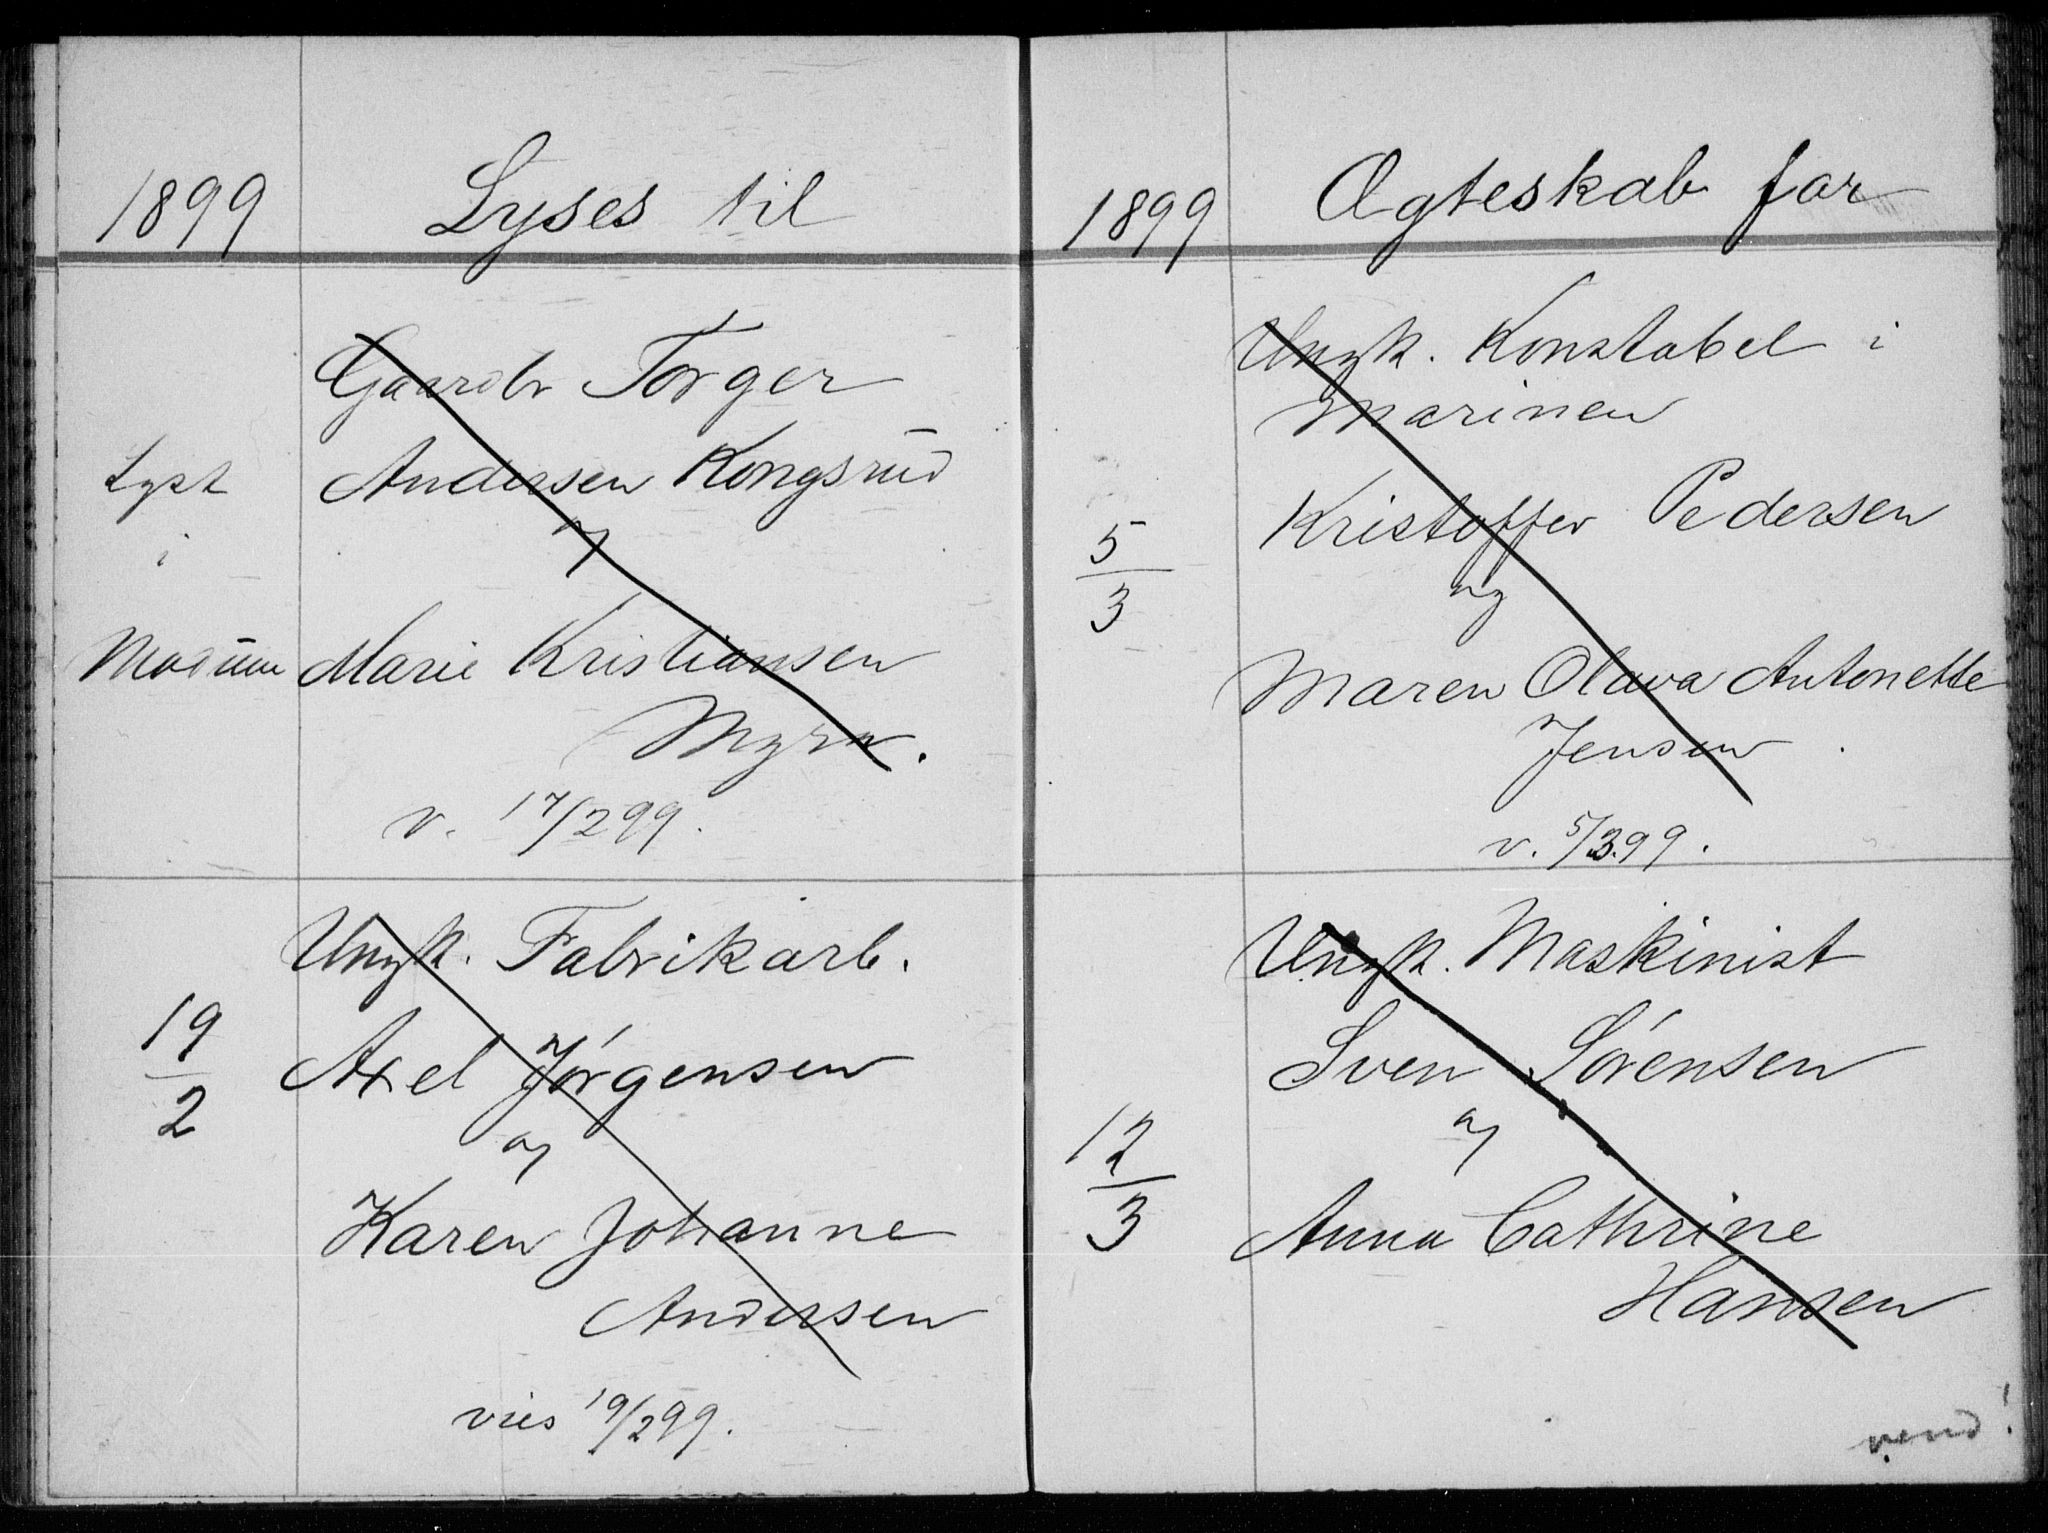 1899 Lyses til
Gaardbr Torger
Lyst Andersen Kongsrud
i og
Modum Marie Kristiansen
Myra.
v. 17/2 99.
Ungk. Fabrikarb.
19/2 Axel Jörgensen
og
Karen Johanne
Andersen
vies 19/2 99.
1899 Ægteskab for
Ungk. Konstabel i
Marinen
Kristoffer Pedersen
5/3 og
Maren Olava Antonette
Jensen
v. 5/3.99.
Ungk. Maskinist
Sven Sörensen
12/3 og
Anna Cathrine
Hansen
vend!